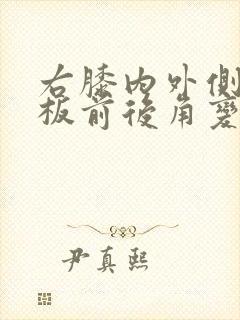 右膝内外侧
板前後角變
尹真熙